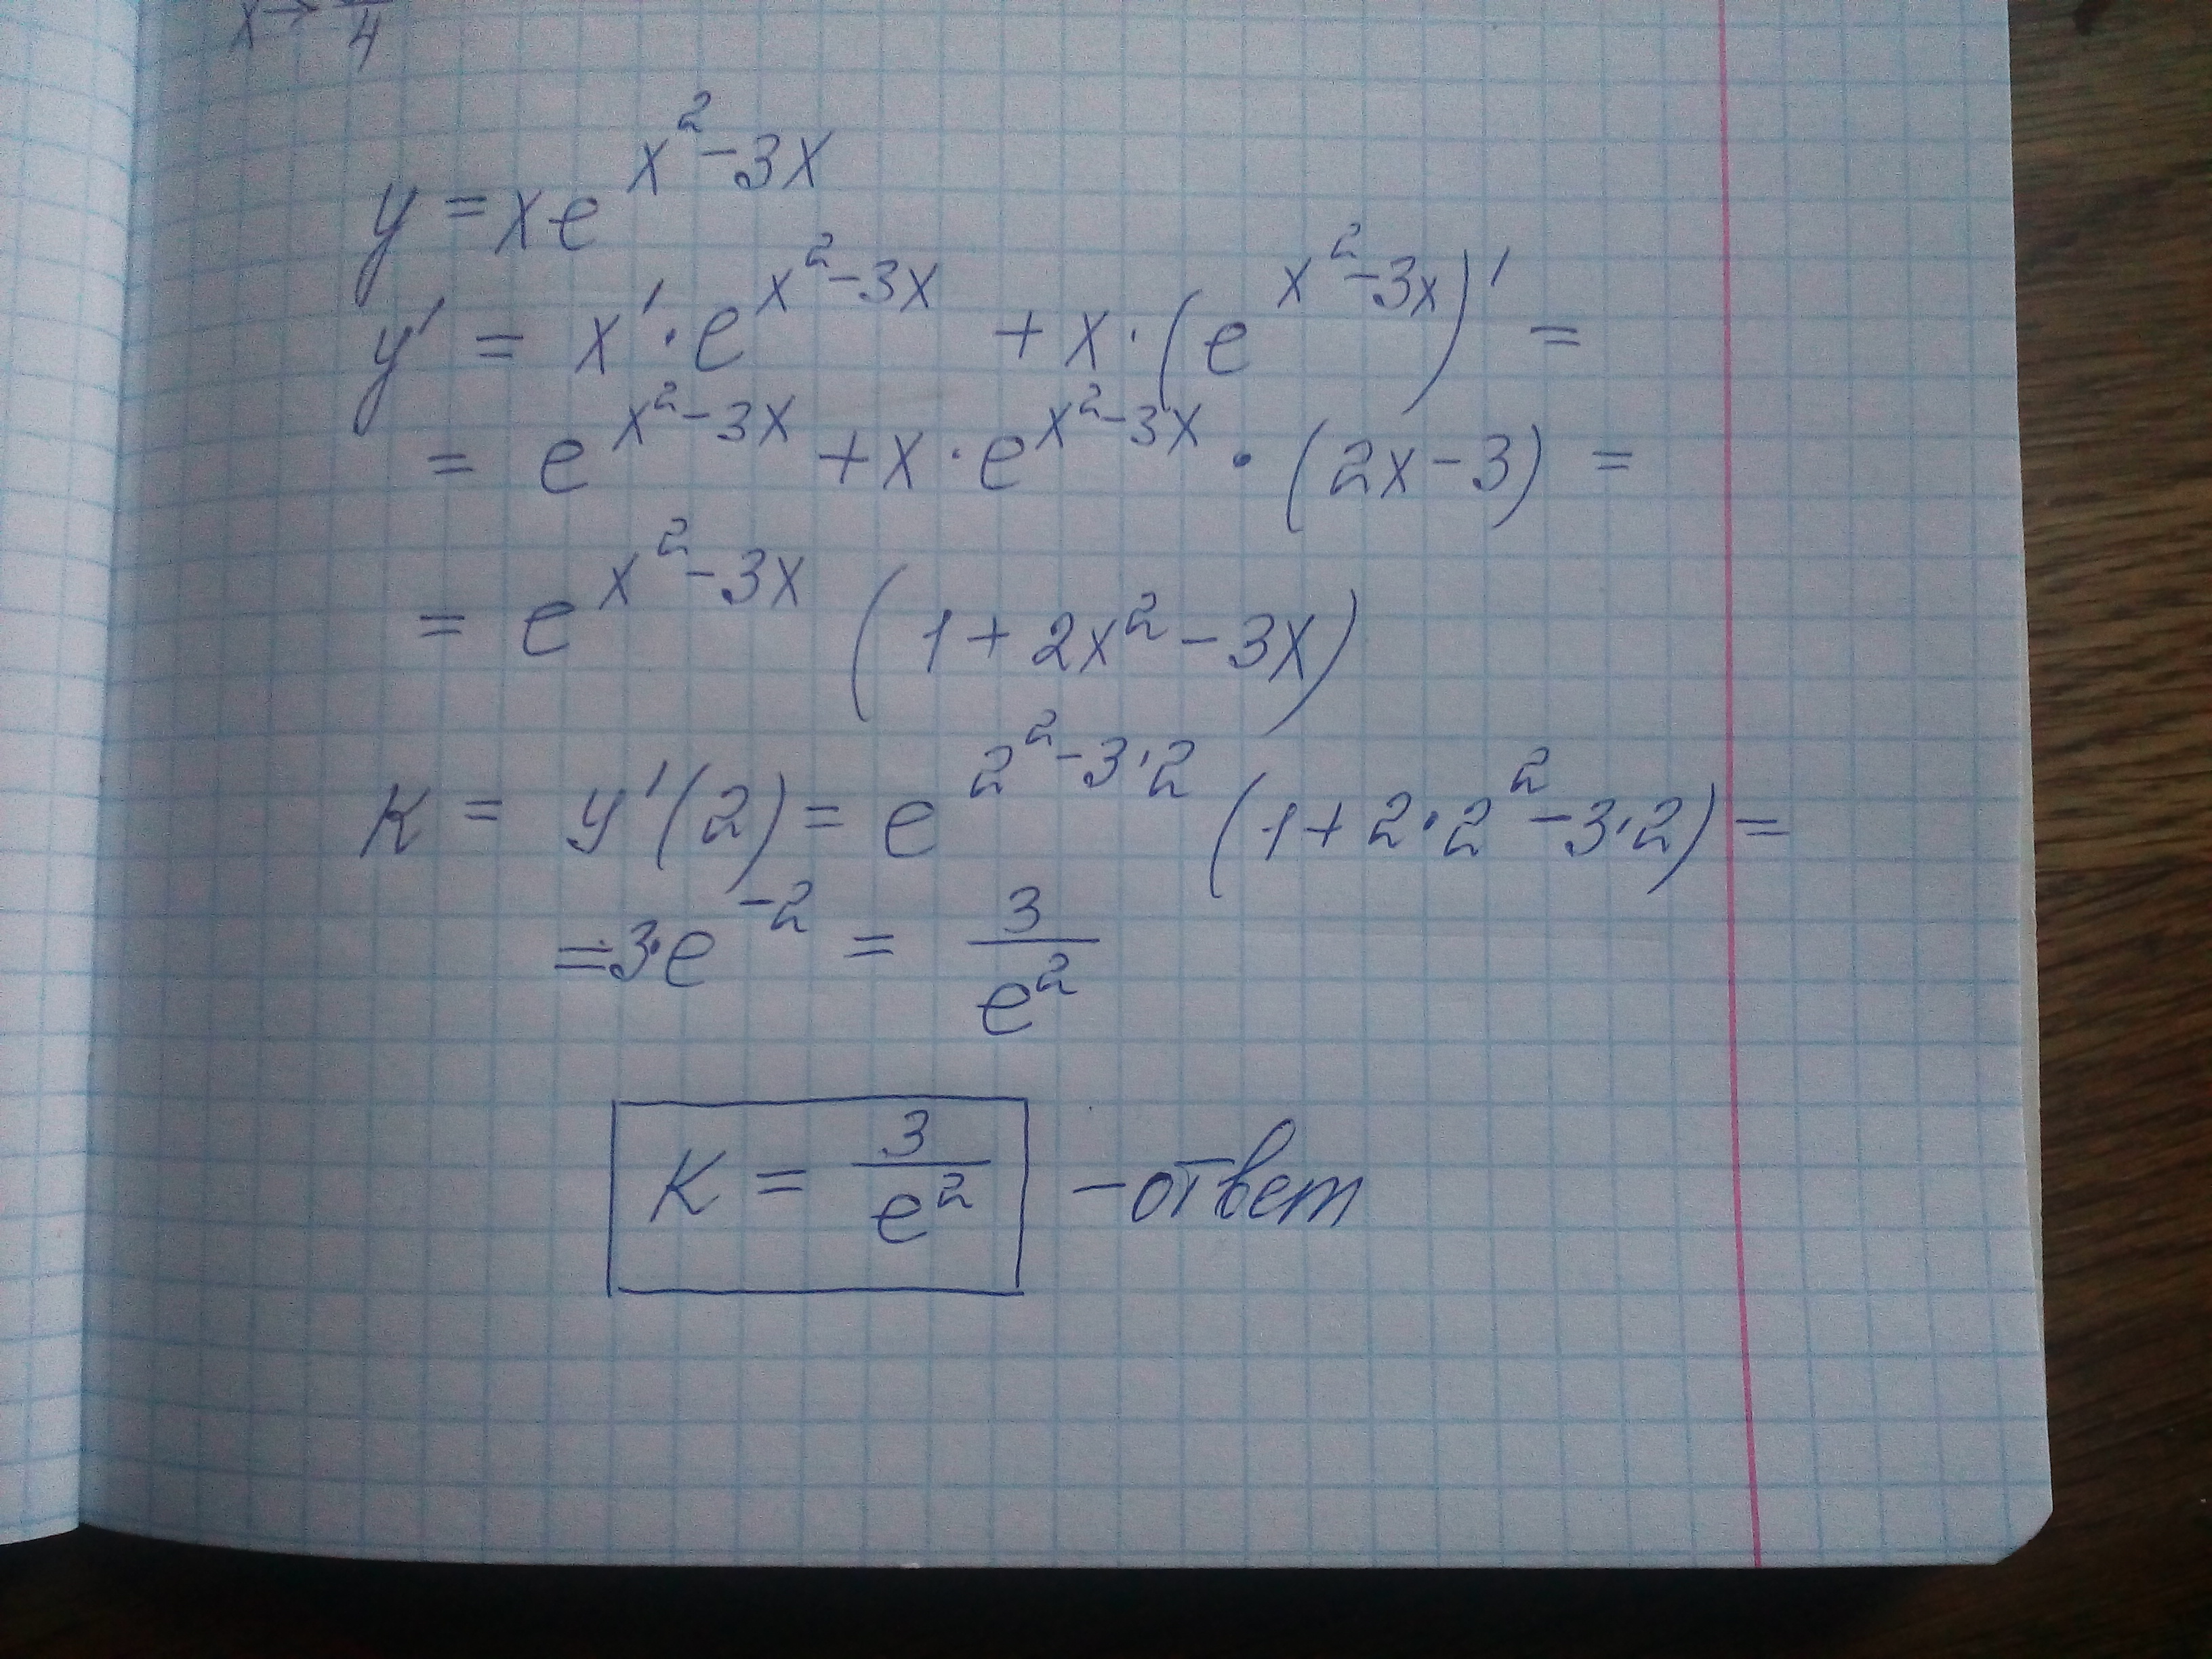 x→ 4
y = xe^{x^2-3x}
y' = x'·e^{x^2-3x} + x·(e^{x^2-3x})' =
= e^{x^2-3x} + x·e^{x^2-3x}·(2x-3) =
= e^{x^2-3x} (1+2x^2-3x)
K = y'(2) = e^{2^2-3·2} (1+2·2^2-3·2) =
=3·e^{-2} = \frac{3}{e^2}
K = \frac{3}{e^2} -ответ